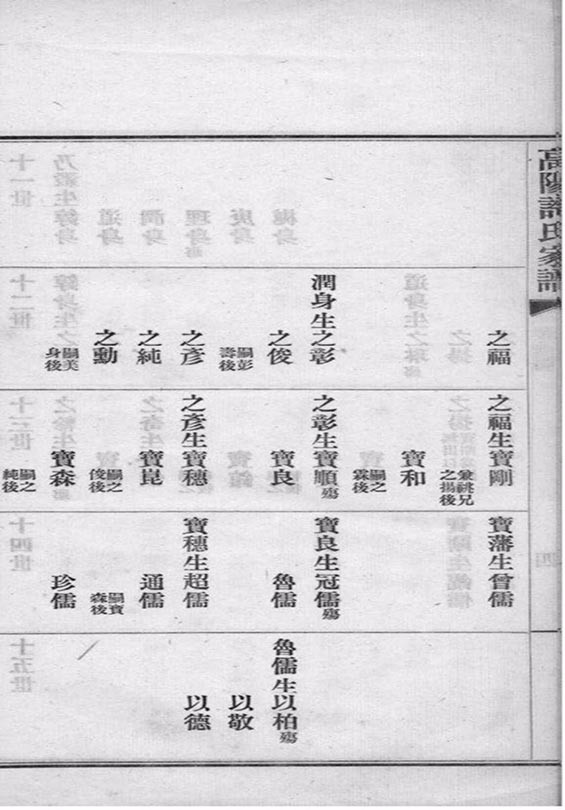 高陽許氏家譜
之福
潤身生之彰
之俊 嗣彭壽後
之彥
之純
之勳 嗣美身後
之福生寶剛 兼祧兄之揚後
寶和 嗣之霖後
之彰生寶順殤
寶良
之彥生寶穗
寶崑 嗣之俊後
寶森 嗣之純後
寶藩生曾儒
寶良生冠儒殤
魯儒
寶穗生超儒
通儒 嗣寶森後
珍儒
魯儒生以柏殤
以敬
以德